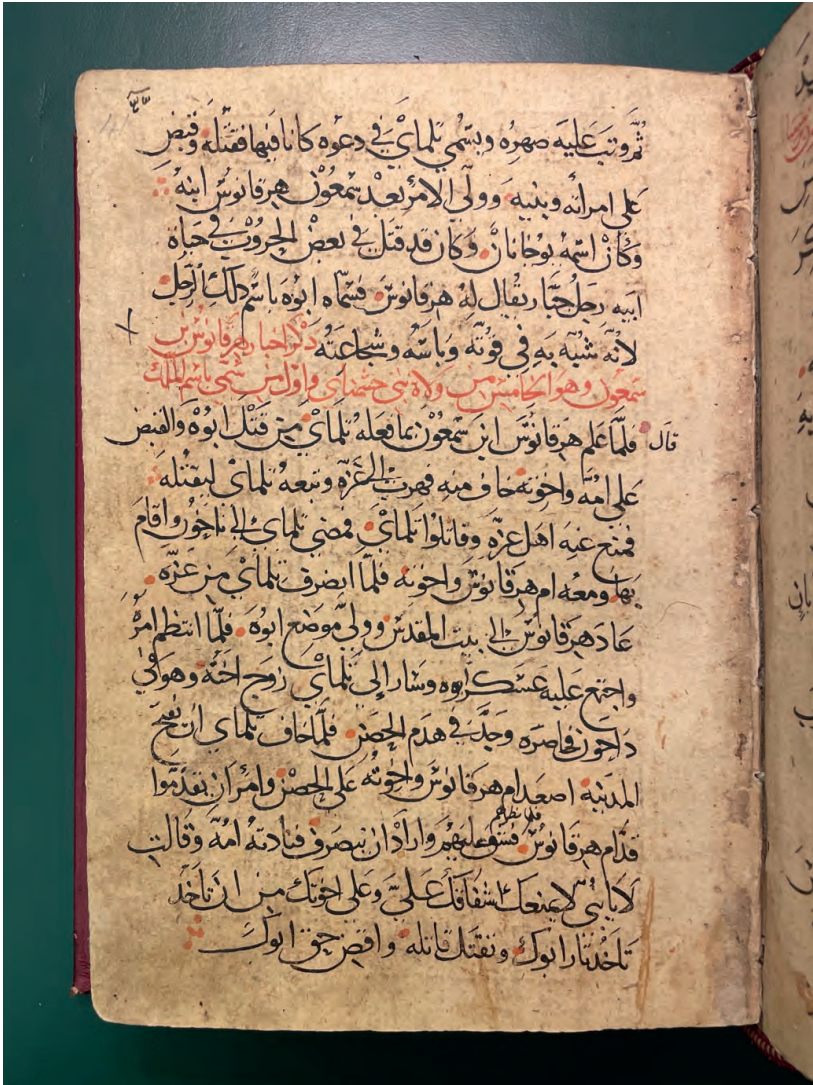 ثم وثب عليه صهره ويسمي تلماي في دعوه كانا فيها فقتله وقبض
علي امراته وبنيه وولي الامر بعد شمعون هرقانوس ابنه
وكان اسمه يوخانان وكان قد قتل في بعض الحروب في حياة
ابيه رجل جبار يقال له هرقانوس فسماه ابوه باسم ذلك الرجل
لانه شبه به في قوته وباسه وشجاعته ذكر اخبار هرقانوس بن
شمعون وهو الخامس من ولاة بني حشمناي واول من سمي باسم الملك
قال فلما علم هرقانوس ابن شمعون بما فعله تلماي من قتل ابوه والقبض
علي امه واخوته خاف منه فهرب الي غزه وتبعه تلماي ليقتله
فمنع عنه اهل غزه وقاتلوا تلماي فمضي تلماي الي داخون واقام
بها ومعه ام هرقانوس واخوته فلما انصرف تلماي من غزه
عاد هرقانوس الي بيت المقدس وولي موضع ابوه فلما انتظم امره
واجتمع عليه عسكر ابوه وسار الي تلماي زوج اخته وهو في
داخون فحاصره وجد في هدم الحصن فلما خاف تلماي ان يفتح
المدينه اصعد ام هرقانوس واخوته علي الحصن وامر ان يقدموا
قدام هرقانوس فلما نظرهم فشق عليهم واراد ان ينصرف فنادته امه وقالت
لا يابني لا يمنعك اشفاقك علي وعلي اخوتك من ان تاخذ
تاخذ ثار ابوك وتقتل قاتله واقض حق ابوك